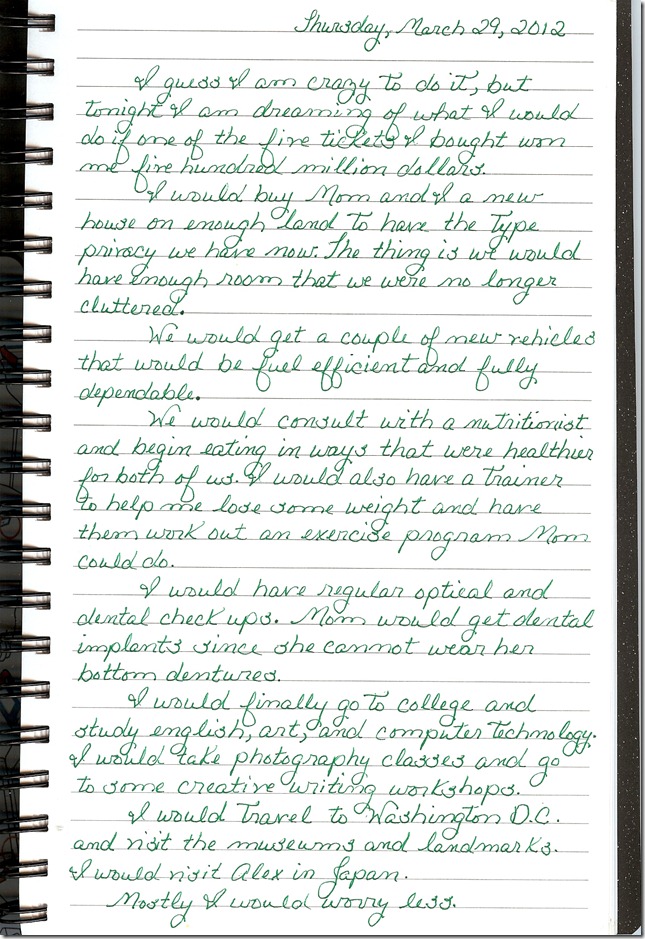 Thursday, March 29, 2012
I guess I am crazy to do it, but
tonight I am dreaming of what I would
do if one of the five tickets I bought won
me five hundred million dollars.
I would buy Mom and I a new
house on enough land to have the type
privacy we have now. The thing is we would
have enough room that we were no longer
cluttered.
We would get a couple of new vehicles
that would be fuel efficient and fully
dependable.
We would consult with a nutritionist
and begin eating in ways that were healthier
for both of us. I would also have a trainer
to help me lose some weight and have
them work out an exercise program Mom
could do.
I would have regular optical and
dental check ups. Mom would get dental
implants since she cannot wear her
bottom dentures.
I would finally go to college and
study english, art, and computer technology.
I would take photography classes and go
to some creative writing workshops.
I would travel to Washington D.C.
and visit the museums and landmarks.
I would visit Alex in Japan.
Mostly I would worry less.